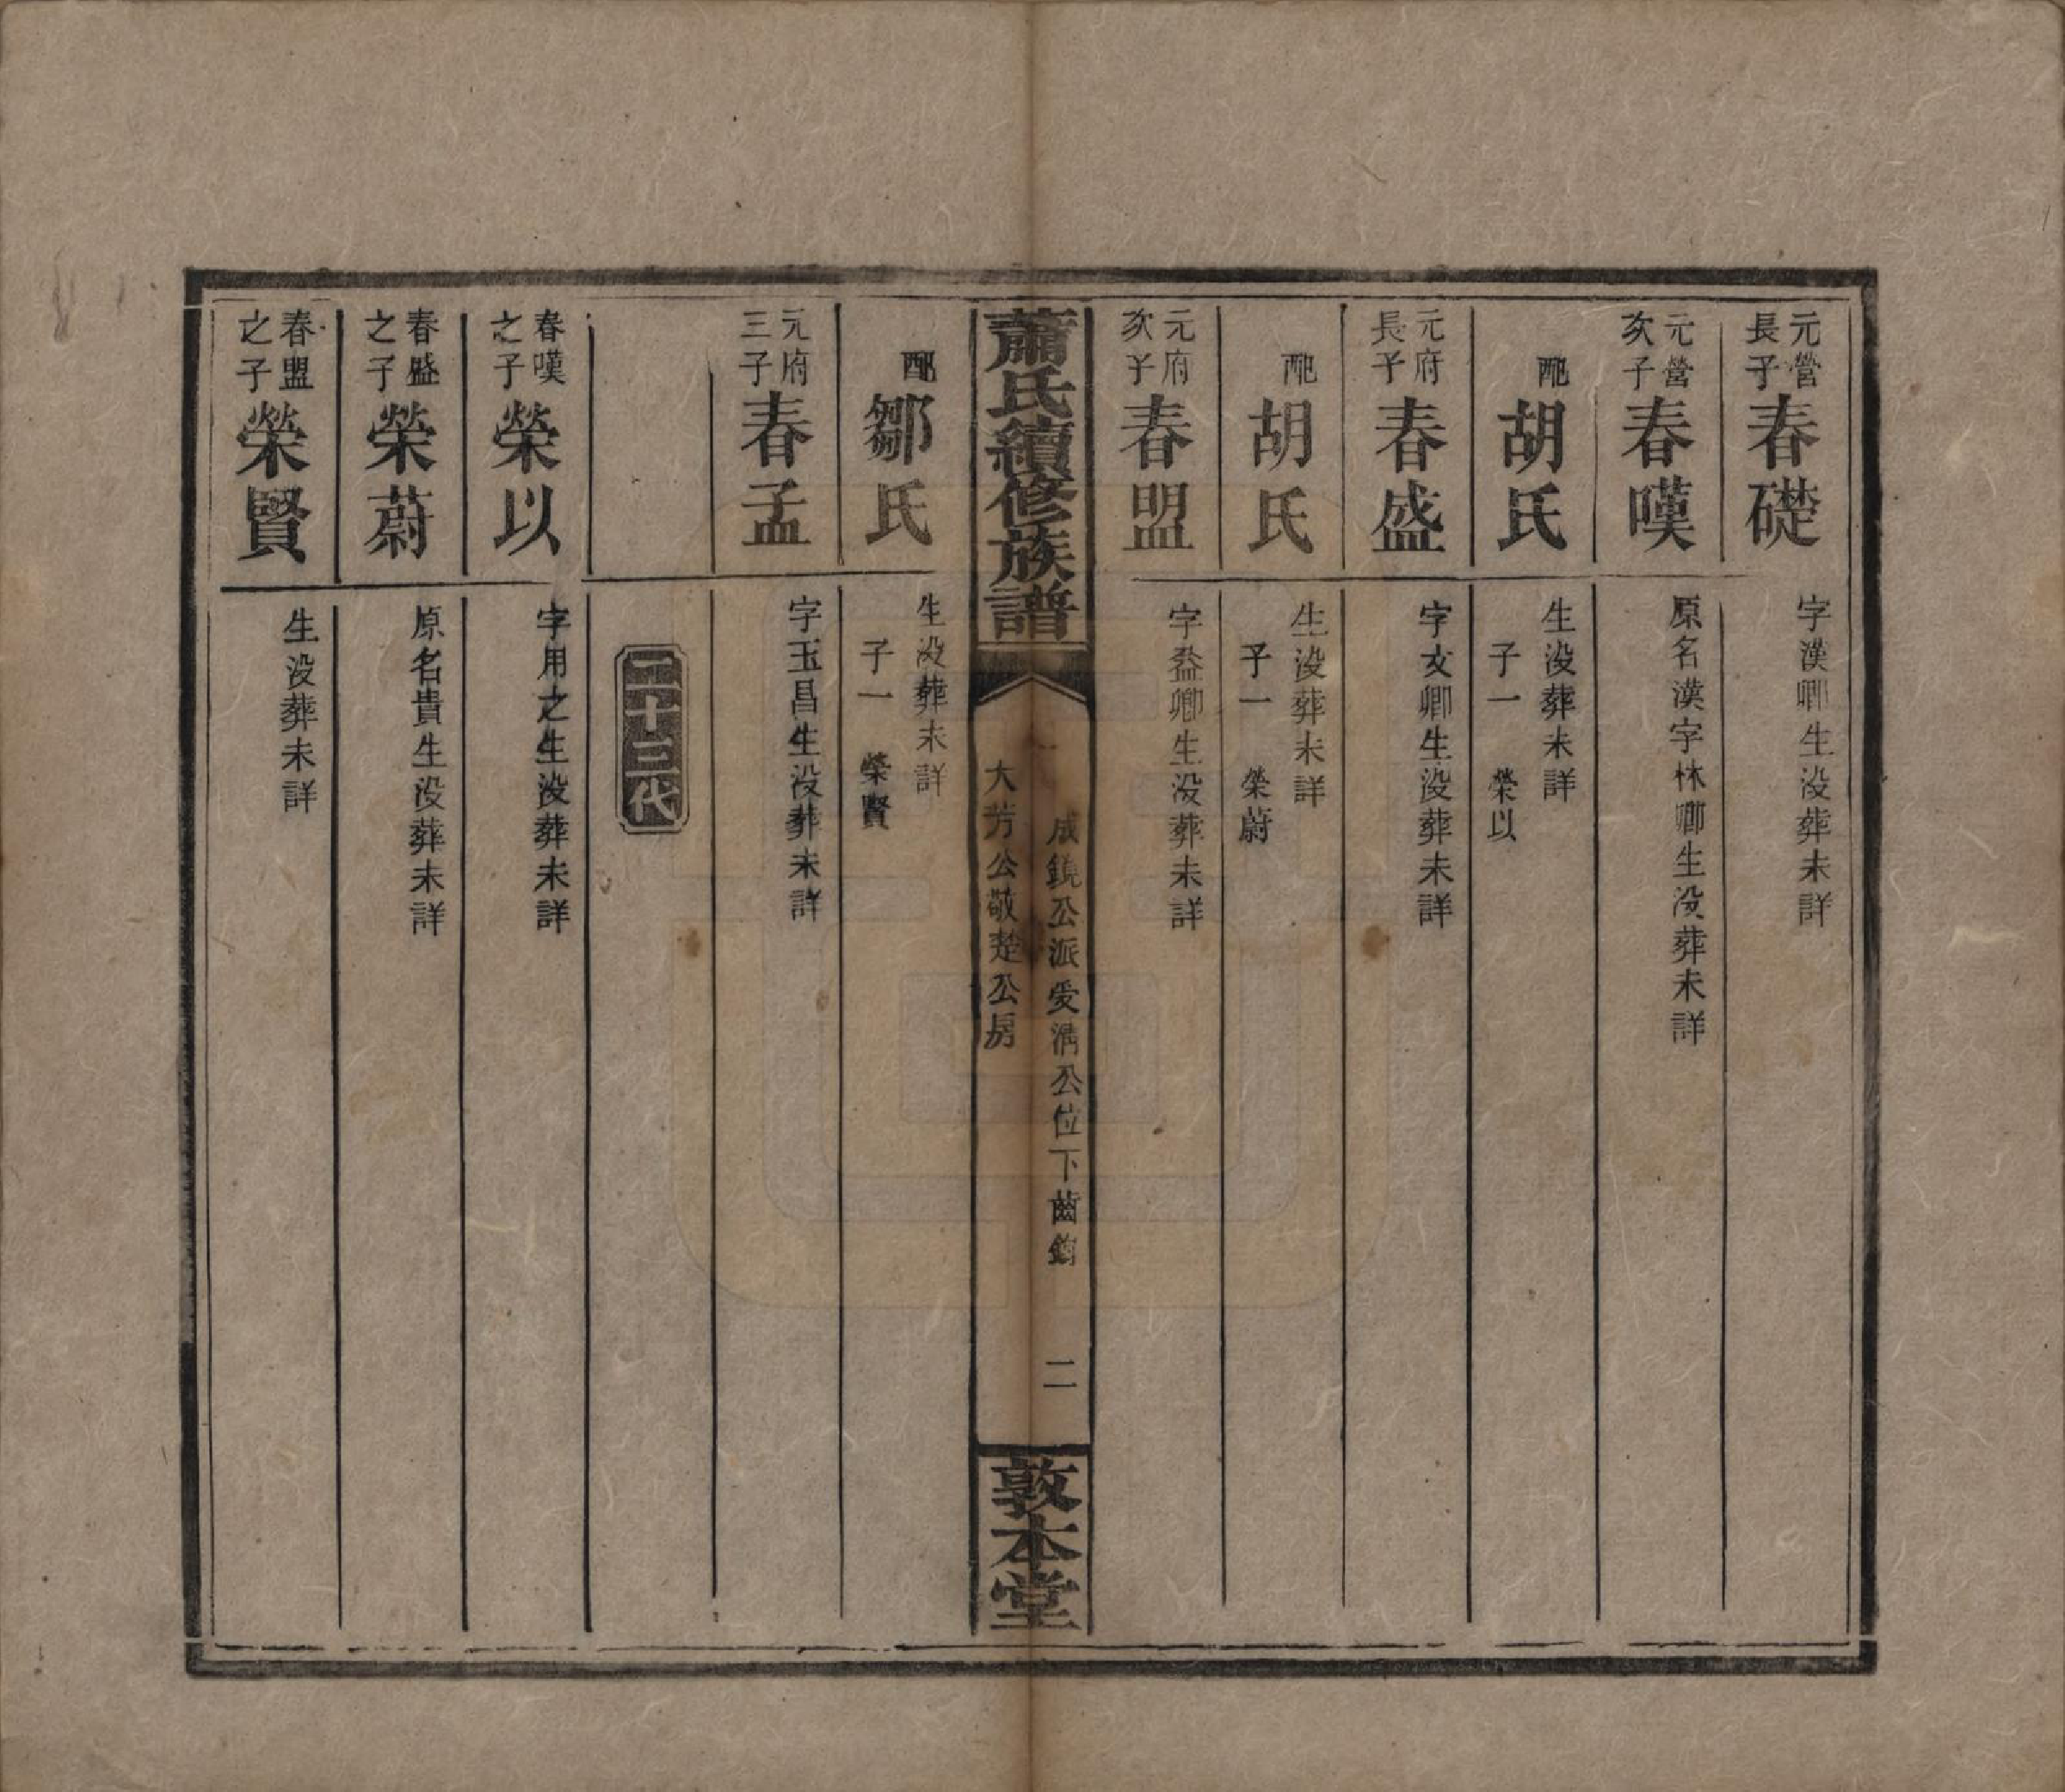 元營長子春礎
字漢卿生没葬未詳
元營次子春嘆
原名漢字林卿生没葬未詳
配胡氏
生没葬未詳
子一 榮以
元府長子春盛
字友卿生没葬未詳
配胡氏
生没葬未詳
子一 榮蔚
元府次子春盟
字益卿生没葬未詳
蕭氏續修族譜
咸鏡公派受淸公位下
大芳公敬楚公房
二
敦本堂
配鄒氏
生没葬未詳
子一 榮賢
元府三子春孟
字玉昌生没葬未詳
二十三代
春嘆之子榮以
字用之生没葬未詳
春盛之子榮蔚
原名貴生没葬未詳
春盟之子榮賢
生没葬未詳